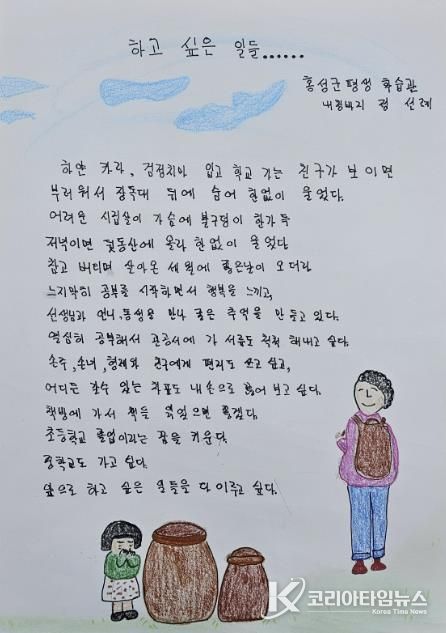 하고 싶은 일들......
홍성군 평생 학습관
내갈바지 정 선례
하얀 카라, 검정치마 입고 학교 가는 친구가 보이면
부러워서 장독대 뒤에 숨어 한없이 울었다.
어려운 시집살이 가슴에 불구덩이 한가득
저녁이면 뒷동산에 올라 한없이 울었다
참고 버티며 살아온 세월에 좋은날이 오더라
느지막히 공부를 시작하면서 행복을 느끼고,
선생님과 언니, 동생을 만나 좋은 추억을 만들고 있다.
열심히 공부해서 관공서에 가 서류도 척척 해내고 싶다.
손주, 손녀, 형제와 친구에게 편지도 쓰고 싶고,
어디든 갈수 있는 차표도 내 손으로 끊어 보고 싶다.
책방에 가서 책을 읽었으면 좋겠다.
초등학교 졸업이라는 꿈을 키운다.
중학교도 가고 싶다.
앞으로 하고 싶은 일들을 다 이루고 싶다.
코리아타임뉴스
Korea Time News